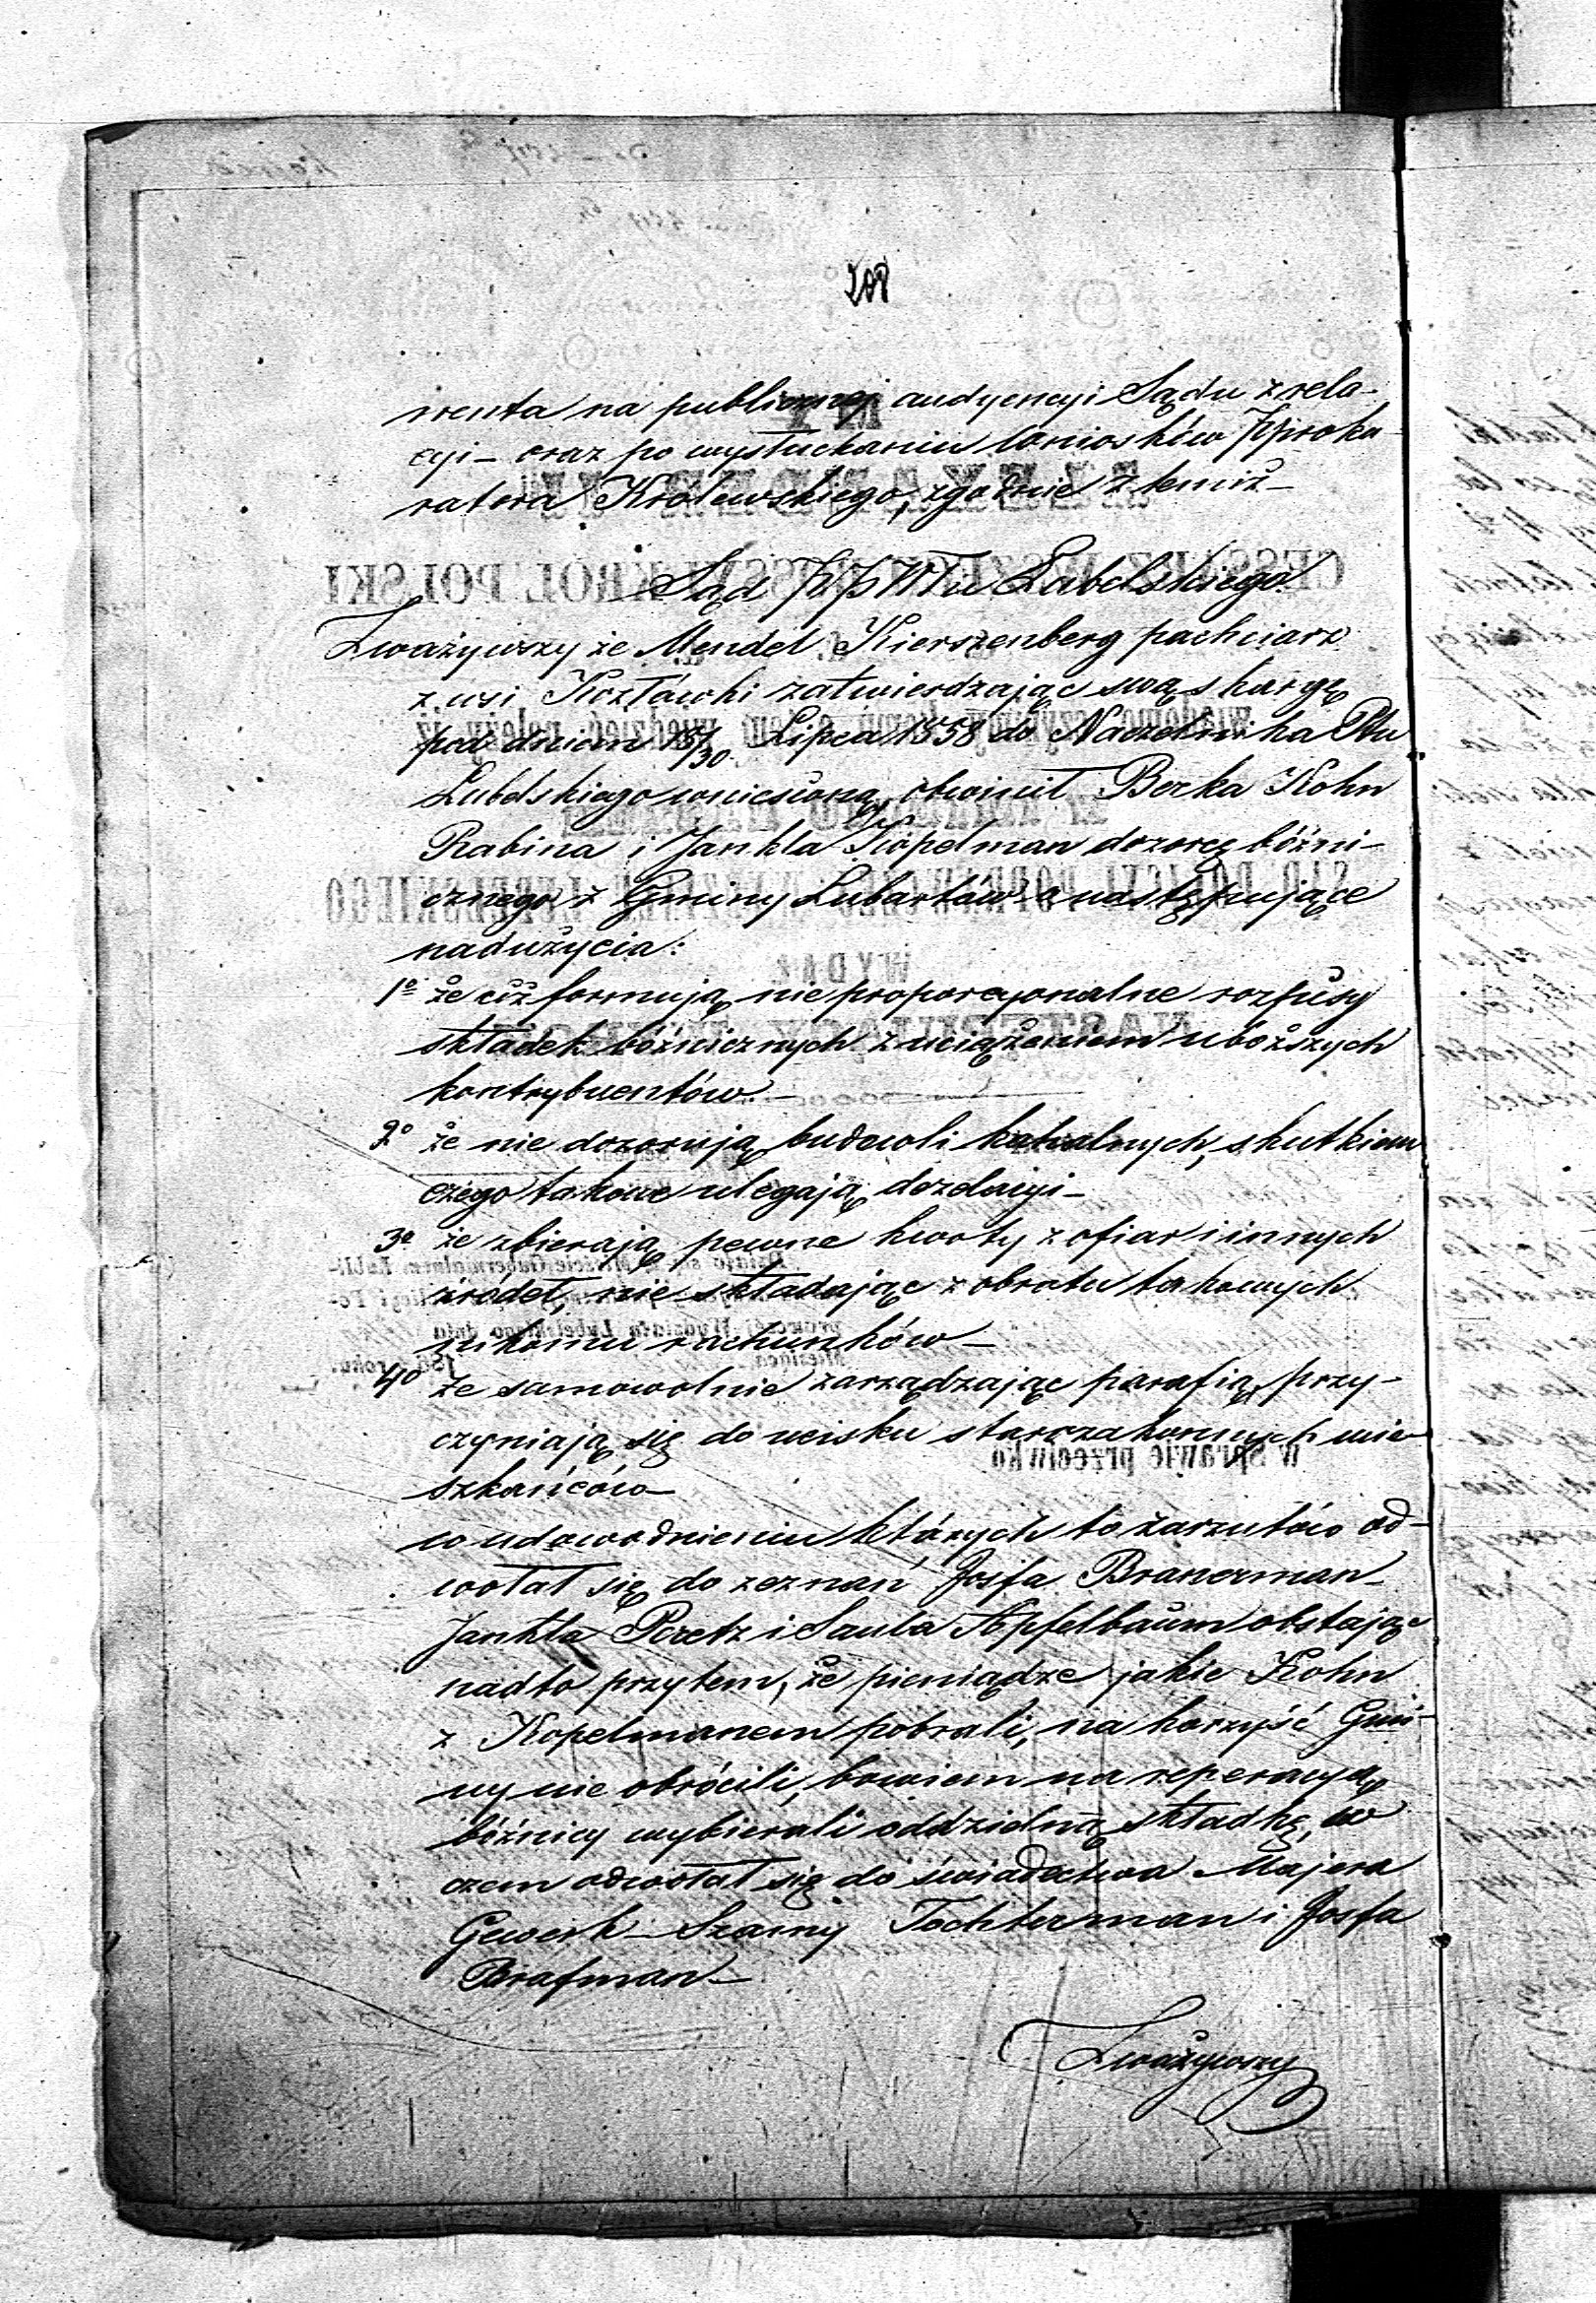 208
renta na publicznej audyencyi Sądu z rela-
cyi – oraz po wysłuchaniu wniosków Pproku
ratora Królewskiego, zgodnie z temiż –
Sąd PPWłu Lubelskiego
Zważywszy że Mendel Kierszenberg pachciarz
z wsi Kozłówki zatwierdzając swą skargę
pod dniem 18/30 Lipca 1858 do Naczelnika Ptu
Lubelskiego wniesioną, obwinił Berka Kohn
Rabina i Jankla Kopelman dozorcę bóźni-
cznego z Gminy Lubartów o następujące
nadużycia:
1o że ciż formują nie proporcyonalne rozpisy
składek bóźnicznych z uciążeniem uboższych
kontrybuentów. –
2o że nie dozorują budowli kahalnych, skutkiem
czego takowe ulegają dezelacyi –
3o że zbierają pewne kwoty z ofiar i innych
źródeł, nie składając z obrotu takowych
nikomu rachunków –
4o że samowolnie zarządzając parafią, przy-
czyniają się do ucisku starozakonnych mie-
szkańców –
w udowodnieniu których to zarzutów od-
wołał się do zeznań Josfa Branerman –
Jankla Peretz i Saula Apfelbaum obstając
nadto przytem, że pieniądze jakie Kohn
z Kopelmanem pobrali, na korzyść Gmi-
ny nie obrócili, bowiem na reperacyą
bóźnicy wybierali oddzielną składkę, w
czem odwołał się do świadectwa Majera
Gewerk – Szamy Tochterman i Josfa
Brafman –
Zważywszy